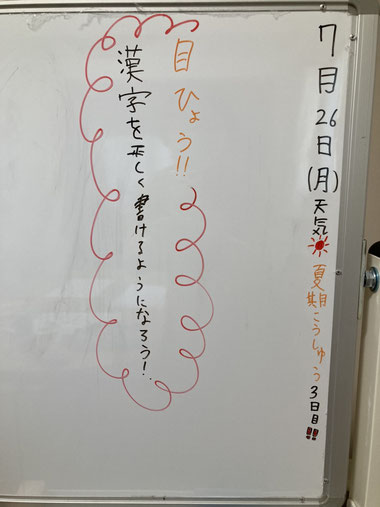 7月26日(月)天気☀夏期こうしゅう3日目!!
目ひょう!!
漢字を正しく書けるようになろう!